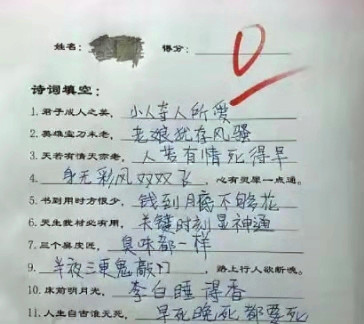 姓名： 得分： 0
诗词填空：
1. 君子成人之美， 小人夺人所爱
2. 英雄宝刀未老， 老娘犹存风骚
3. 天若有情天亦老， 人若有情死得早
4. 身无彩凤双双飞 ，心有灵犀一点通。
5. 书到用时方恨少， 钱到月底不够花
6. 天生教材必有用， 关键时刻显神通
7. 三个臭皮匠， 臭味都一样
9. 半夜三更鬼敲门 ，路上行人欲断魂。
10. 床前明月光， 李白睡得香
11. 人生自古谁无死， 早死晚死都要死